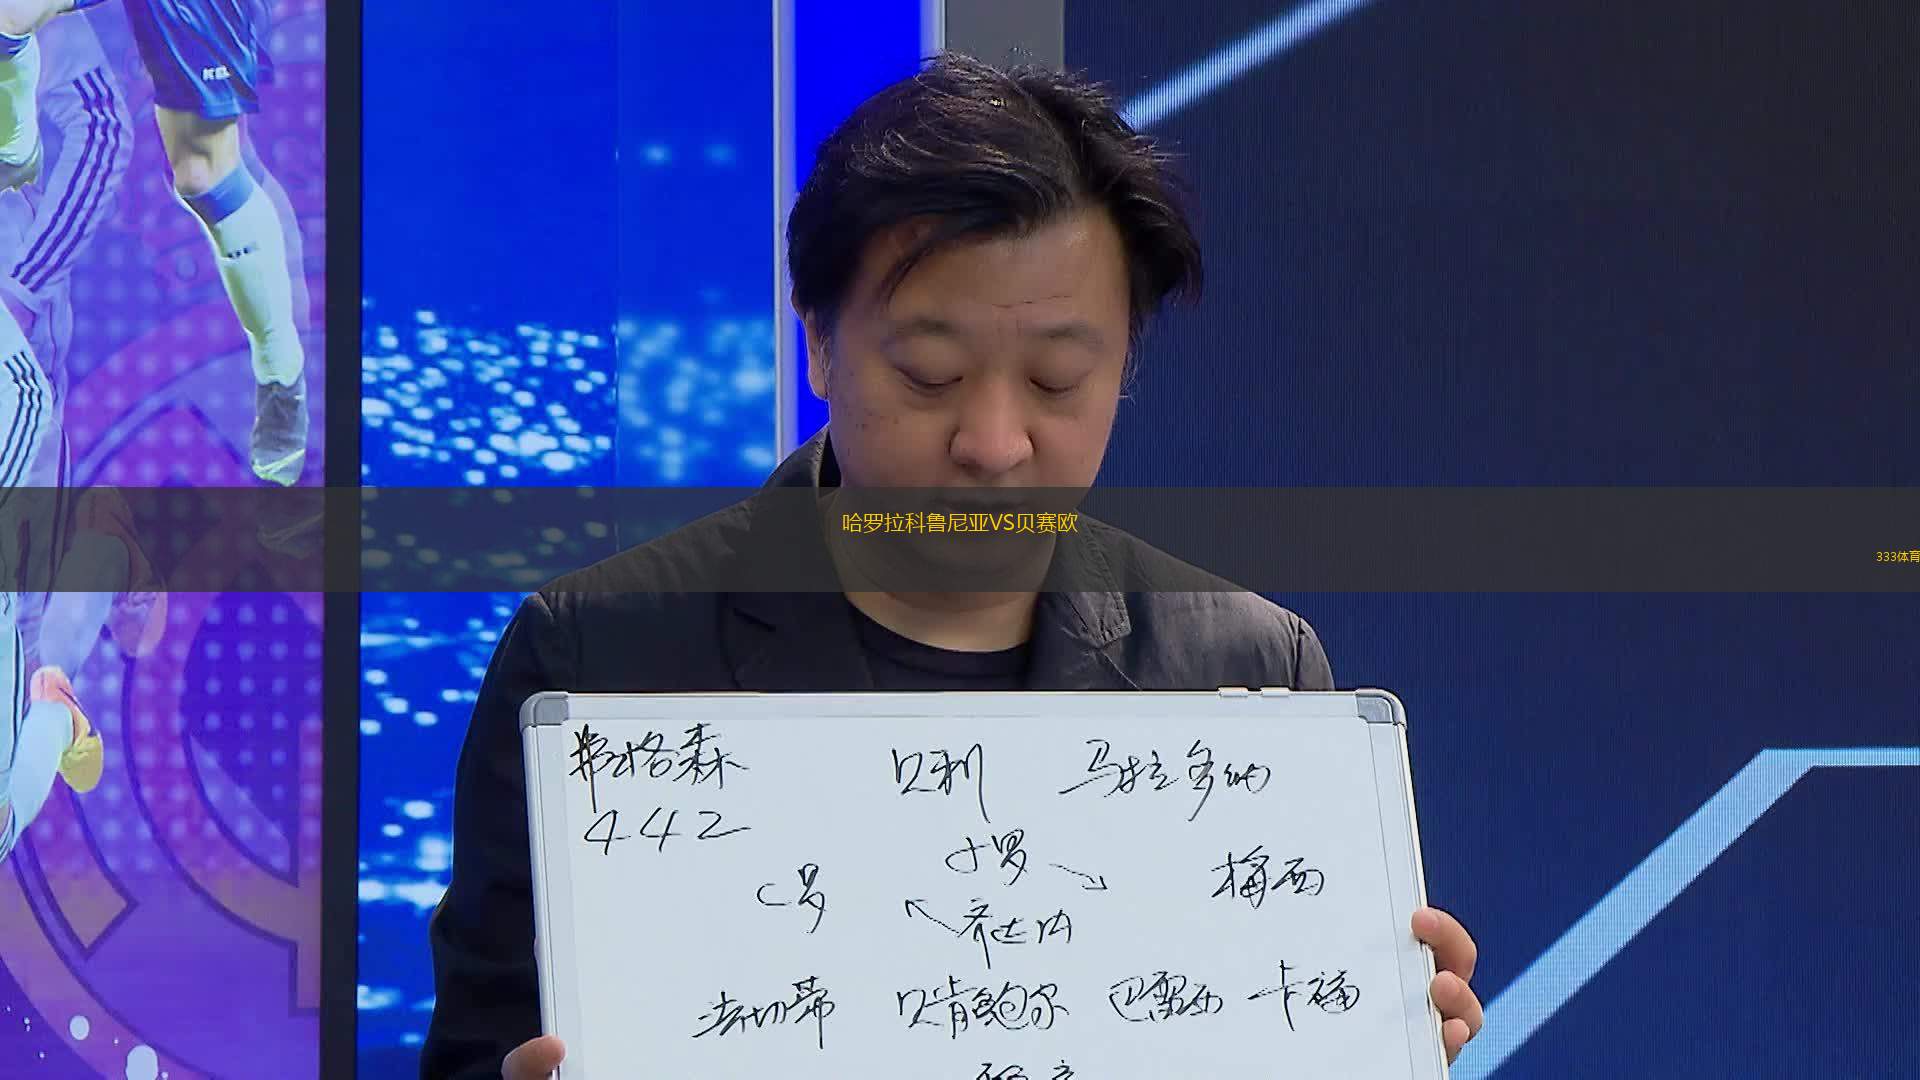 哈罗拉科鲁尼亚VS贝赛欧
333体育
弗格森 贝利 马拉多纳
442
小罗
C罗 梅西
齐达内
法切蒂 贝肯鲍尔 巴雷西 卡福